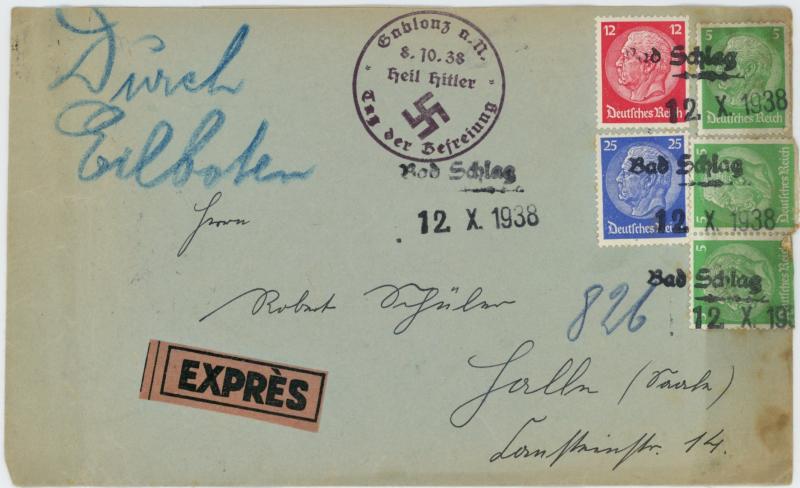 Durch
Eilboten
Gablonz a.N.
8. 10. 38
Heil Hitler
Tag der Befreiung
12
Deutsches Reich
5
Deutsches Reich
Bad Schlag
12. X. 1938
25
Deutsches Reich
5
Deutsches Reich
Bad Schlag
12. X. 1938
5
Deutsches Reich
Bad Schlag
12. X. 19
Bad Schlag
12. X. 1938
Herrn
Robert Schüler
826
EXPRÈS
Halle (Saale)
14.